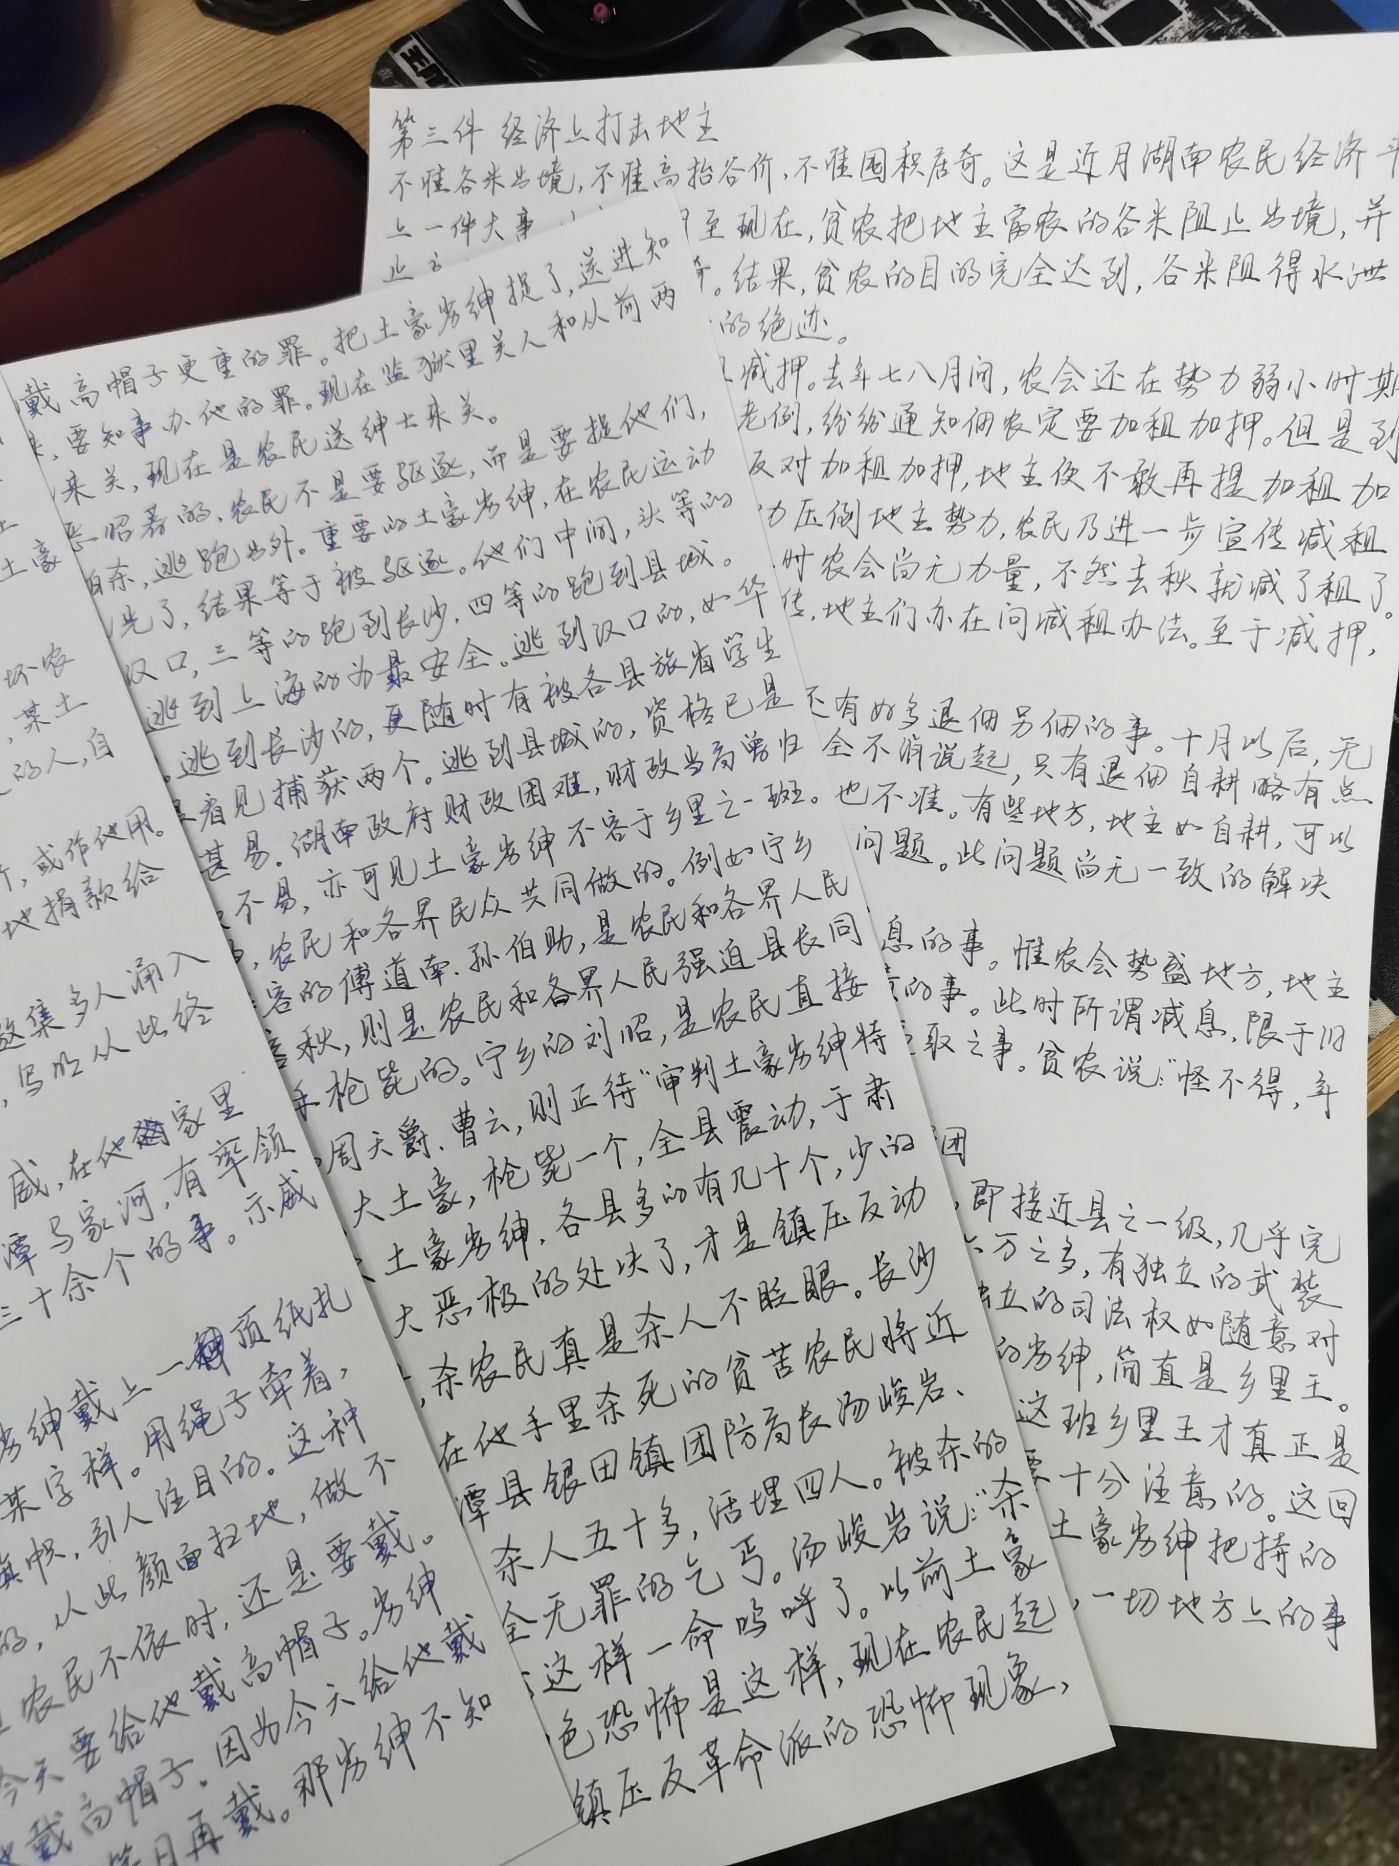 第三件 经济上打击地主
不准谷米出境,不准高抬谷价,不准囤积居奇。这是近月湖南农民经济斗
上一件大事
至现在,贫农把地主富农的谷米阻止出境,并
止
。结果,贫农的目的完全达到,谷米阻得水泄
的绝迹。
减押。去年七八月间,农会还在势力弱小时期
老例,纷纷通知佃农定要加租加押。但是到
反对加租加押,地主便不敢再提加租加
力压倒地主势力,农民乃进一步宣传减租
时农会尚无力量,不然去秋就减了租了。
传,地主们亦在问减租办法。至于减押,
还有好多退佃另佃的事。十月以后,无
全不消说起,只有退佃自耕略有点
也不准。有些地方,地主如自耕,可以
问题。此问题尚无一致的解决
息的事。惟农会势盛地方,地主
的事。此时所谓减息,限于旧
取之事。贫农说:“怪不得,年
团
,即接近县之一级,几乎完
六万之多,有独立的武装
独立的司法权如随意对
的劣绅,简直是乡里王。
这班乡里王才真正是
要十分注意的。这回
土豪劣绅把持的
,一切地方上的事
戴高帽子更重的罪。把土豪劣绅捉了,送进知
,要知事办他的罪。现在监狱里关人和从前两
来关,现在是农民送绅士来关。
恶昭著的,农民不是要驱逐,而是要捉他们,
自杀,逃跑出外。重要的土豪劣绅,在农民运动
光了,结果等于被驱逐。他们中间,头等的
汉口,三等的跑到长沙,四等的跑到县城。
逃到上海的为最安全。逃到汉口的,如华
。逃到长沙的,更随时有被各县旅省学生
看见捕获两个。逃到县城的,资格已是
甚易。湖南政府财政困难,财政当局曾归
不易,亦可见土豪劣绅不容于乡里之一斑。
,农民和各界民众共同做的。例如宁乡
的傅道南、孙伯助,是农民和各界人民
秋,则是农民和各界人民强迫县长同
手枪毙的。宁乡的刘昭,是农民直接
周天爵、曹云,则正待“审判土豪劣绅特
大土豪,枪毙一个,全县震动,于肃
土豪劣绅,各县多的有几十个,少的
大恶极的处决了,才是镇压反动
,杀农民真是杀人不眨眼。长沙
在他手里杀死的贫苦农民将近
潭县银田镇团防局长汤峻岩、
杀人五十多,活埋四人。被杀的
全无罪的乞丐。汤峻岩说:“杀
这样一命呜呼了。以前土豪
色恐怖是这样,现在农民起
镇压反革命派的恐怖现象,
土豪
坏农
,某土
的人,自
,或作他用。
地捐款给
多人涌入
,写明从此终
威,在他家里
潭马家河,有率领
三十余个的事。示威
劣绅戴上一顶纸扎
某字样。用绳子牵着,
旗帜,引人注目的。这种
的,从此颜面扫地,做不
农民不依时,还是要戴。
今天要给他戴高帽子。劣绅
戴高帽子。因为今天给他戴
再戴。那劣绅不知